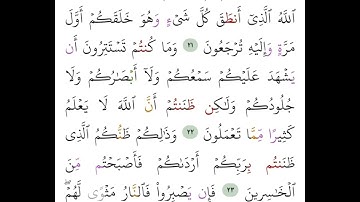 اللَّهُ الَّذِيٓ أَنطَقَ كُلَّ شَىْءٍ وَهُوَ خَلَقَكُمْ أَوَّلَ
مَرَّةٍ وَإِلَيْهِ تُرْجَعُونَ ٢١ وَمَا كُنتُمْ تَسْتَتِرُونَ أَن
يَشْهَدَ عَلَيْكُمْ سَمْعُكُمْ وَلَآ أَبْصَـٰرُكُمْ وَلَا
جُلُودُكُمْ وَلَـٰكِن ظَنَنتُمْ أَنَّ اللَّهَ لَا يَعْلَمُ
كَثِيرًا مِّمَّا تَعْمَلُونَ ٢٢ وَذَٰلِكُمْ ظَنُّكُمُ الَّذِى
ظَنَنتُم بِرَبِّكُمْ أَرْدَىٰكُمْ فَأَصْبَحْتُم مِّنَ
الْخَـٰسِرِينَ ٢٣ فَإِن يَصْبِرُوا۟ فَالنَّارُ مَثْوًى لَّهُمْ ۖ